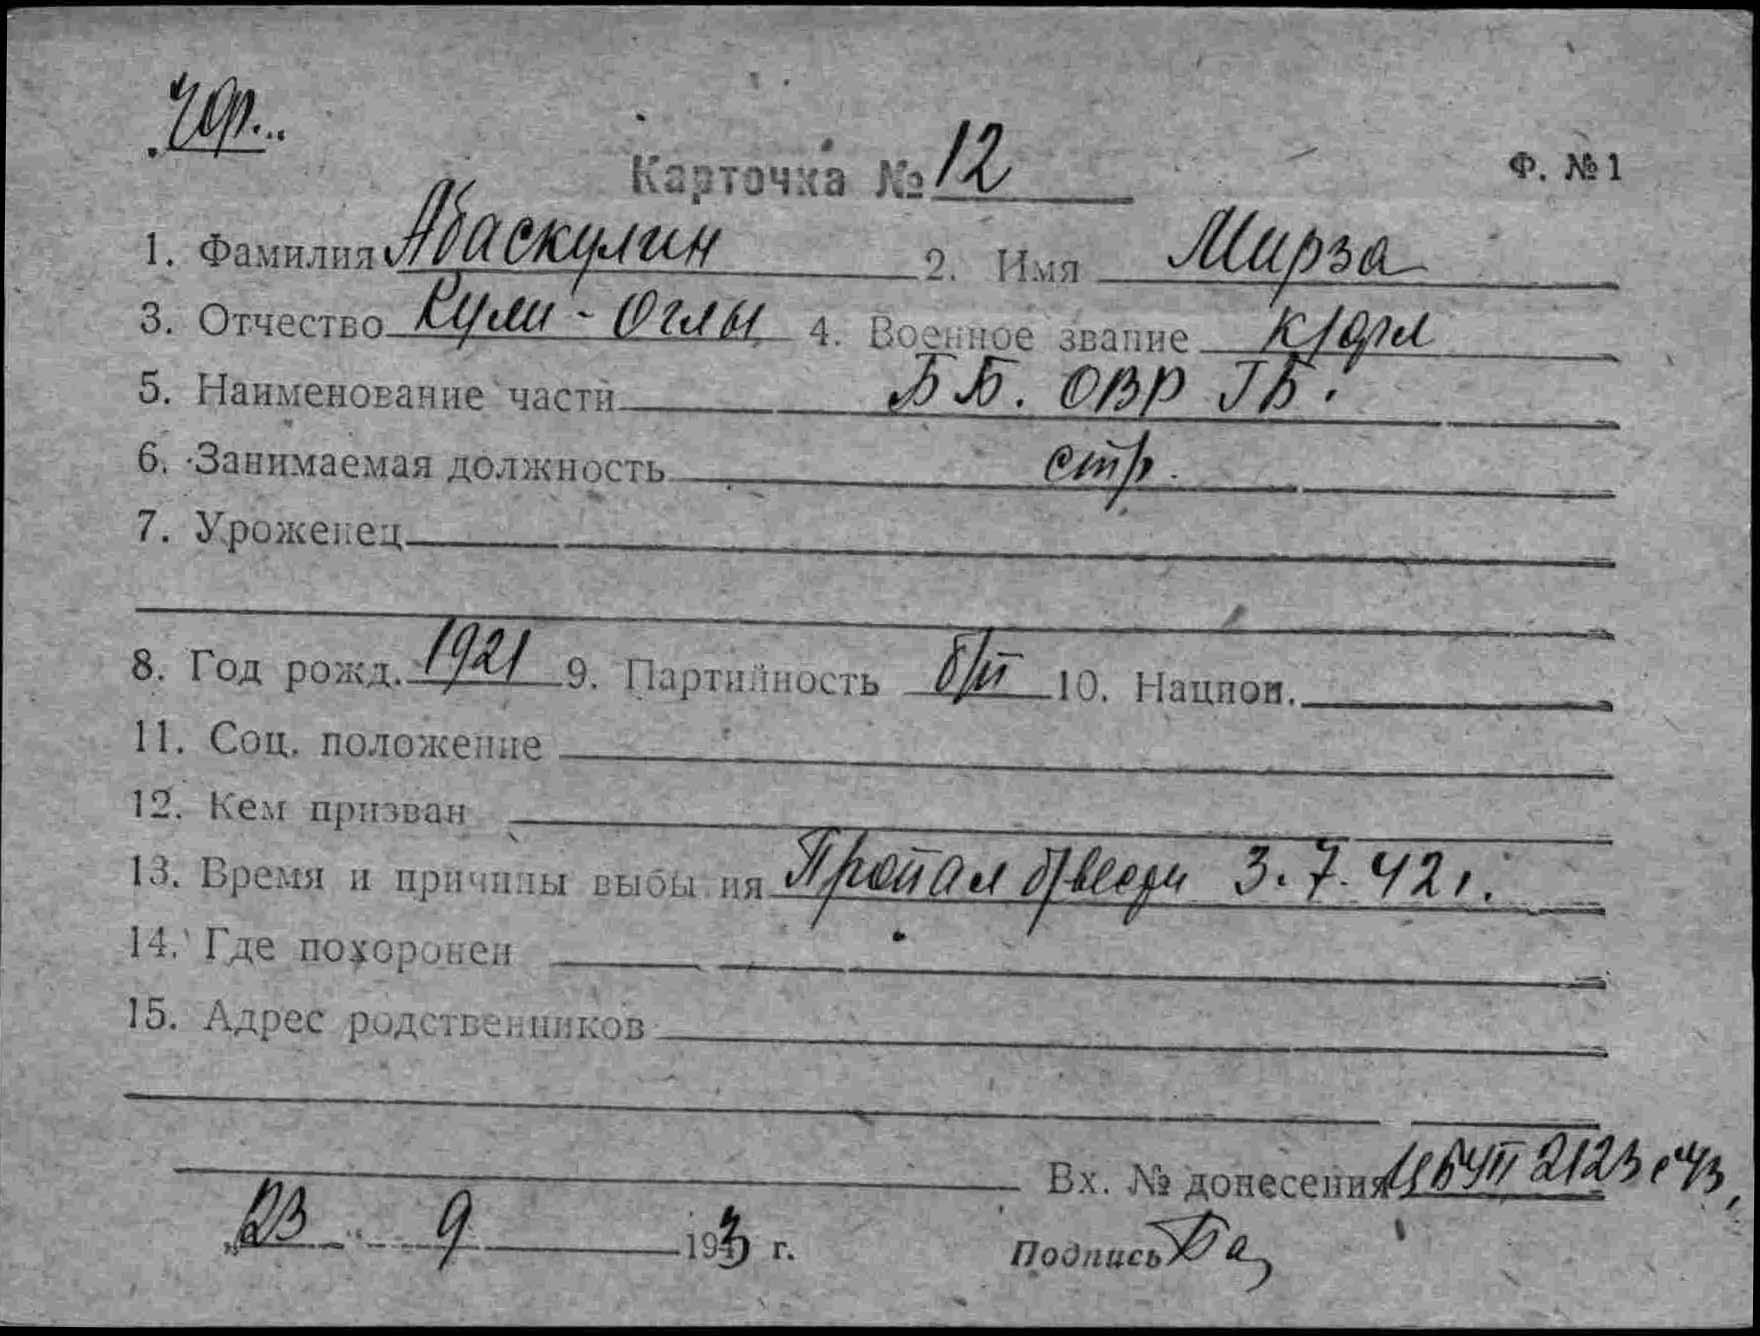 Карточка № 12 Ф. № 1
1. Фамилия Абаскулин 2. Имя Мирза
3. Отчество Кули-Оглы 4. Военное звание к/фл
5. Наименование части ББ. ОВР ГБ.
6. Занимаемая должность стр.
7. Уроженец
8. Год рожд. 1921 9. Партийность б/п 10. Национ.
11. Соц. положение
12. Кем призван
13. Время и причины выбы ия Пропал б/вести 3.7.42 г.
14. Где похоронен
15. Адрес родственников
Вх. № донесения 2123
„23 9 1943 г. Подпись